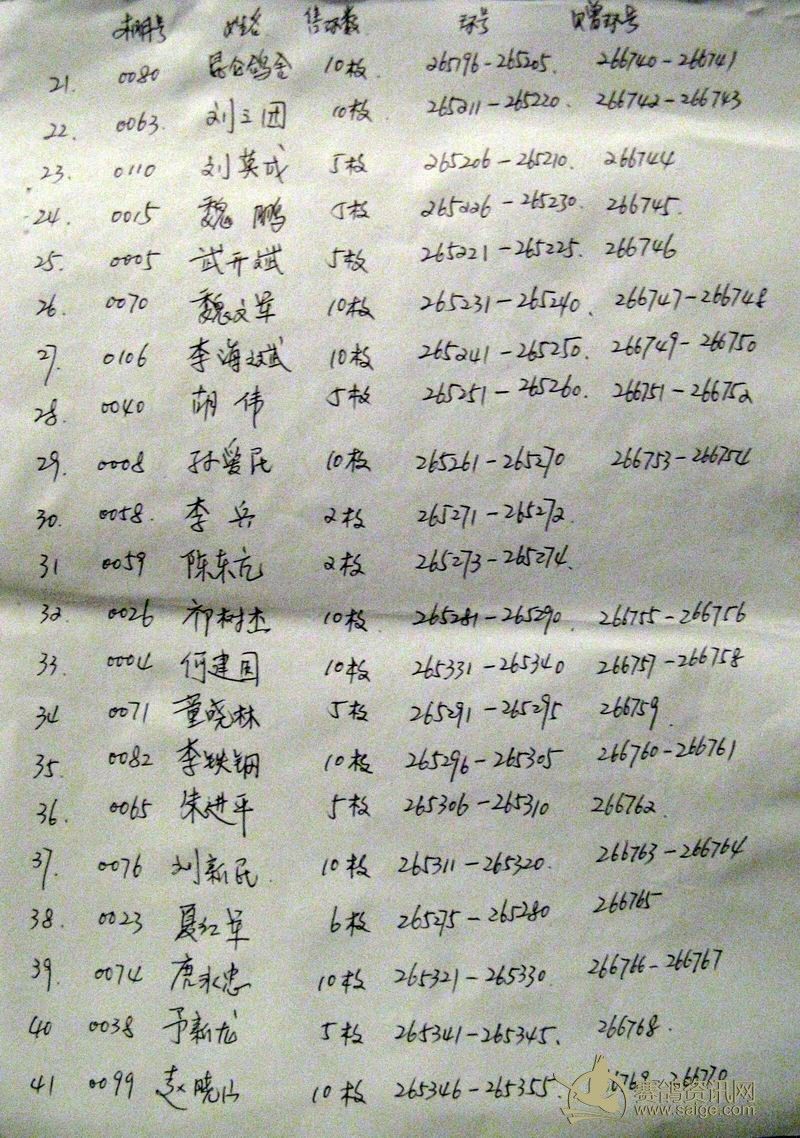 棚号 姓名 售环数 环号 赠环号
21. 0080 昆仑鸽舍 10枚 265196-265205. 266740-266741
22. 0063. 刘立团 10枚 265211-265220. 266742-266743
23. 0110 刘英成 5枚 265206-265210. 266744
24. 0015 魏鹏 5枚 265226-265230. 266745.
25. 0005 武开斌 5枚 265221-265225. 266746
26. 0070 魏文军 10枚 265231-265240. 266747-266748
27. 0106 李海斌 10枚 265241-265250. 266749-266750
28. 0040 胡伟 5枚 265251-265260. 266751-266752
29. 0008 孙爱民 10枚 265261-265270 266753-266754
30. 0058. 李兵 2枚 265271-265272.
31 0059 陈东亢 2枚 265273-265274.
32. 0026 祁树杰 10枚 265281-265290. 266755-266756
33. 0004 何建国 10枚 265331-265340 266757-266758
34 0071 董晓林 5枚 265291-265295 266759.
35. 0082 李铁钢 10枚 265296-265305 266760-266761
36. 0065 朱进平 5枚 265306-265310 266762.
37. 0076 刘新民. 10枚 265311-265320. 266763-266764
38. 0023 夏红军 6枚 265275-265280 266765
39. 0074 唐永忠 10枚 265321-265330. 266766-266767
40 0038 予新龙 5枚 265341-265345. 266768.
41 0099 赵晓山 10枚 265346-265355. 6769-266770
赛鸽资讯网
www.saige.com